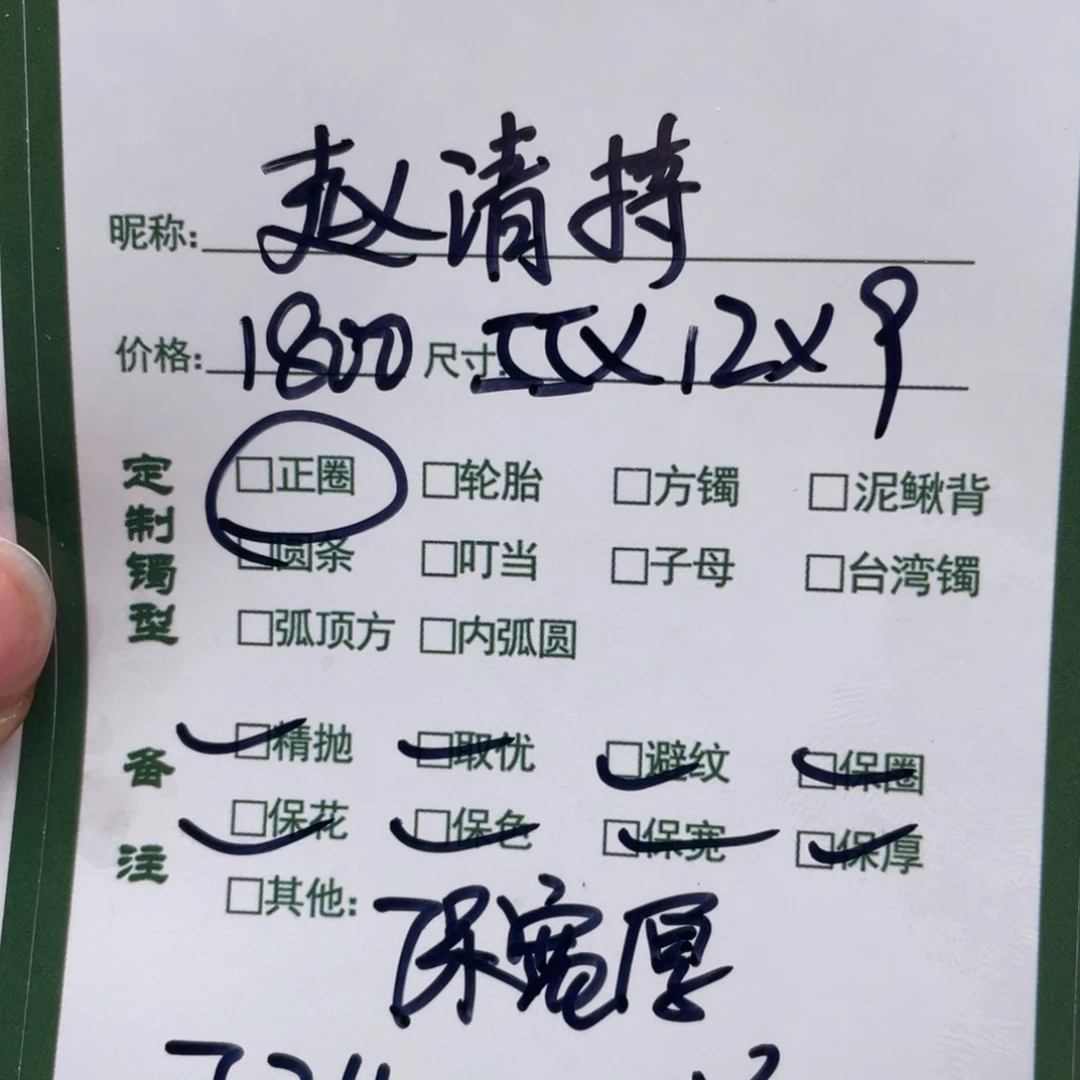 昵称: 赵清持
价格: 1800 尺寸: 55X12X9
定制镯型
□正圈 □轮胎 □方镯 □泥鳅背
□圆条 □叮当 □子母 □台湾镯
□弧顶方 □内弧圆
备注
□精抛 □取优 □避纹 □保圈
□保花 □保色 □保宽 □保厚
□其他: 保宽厚